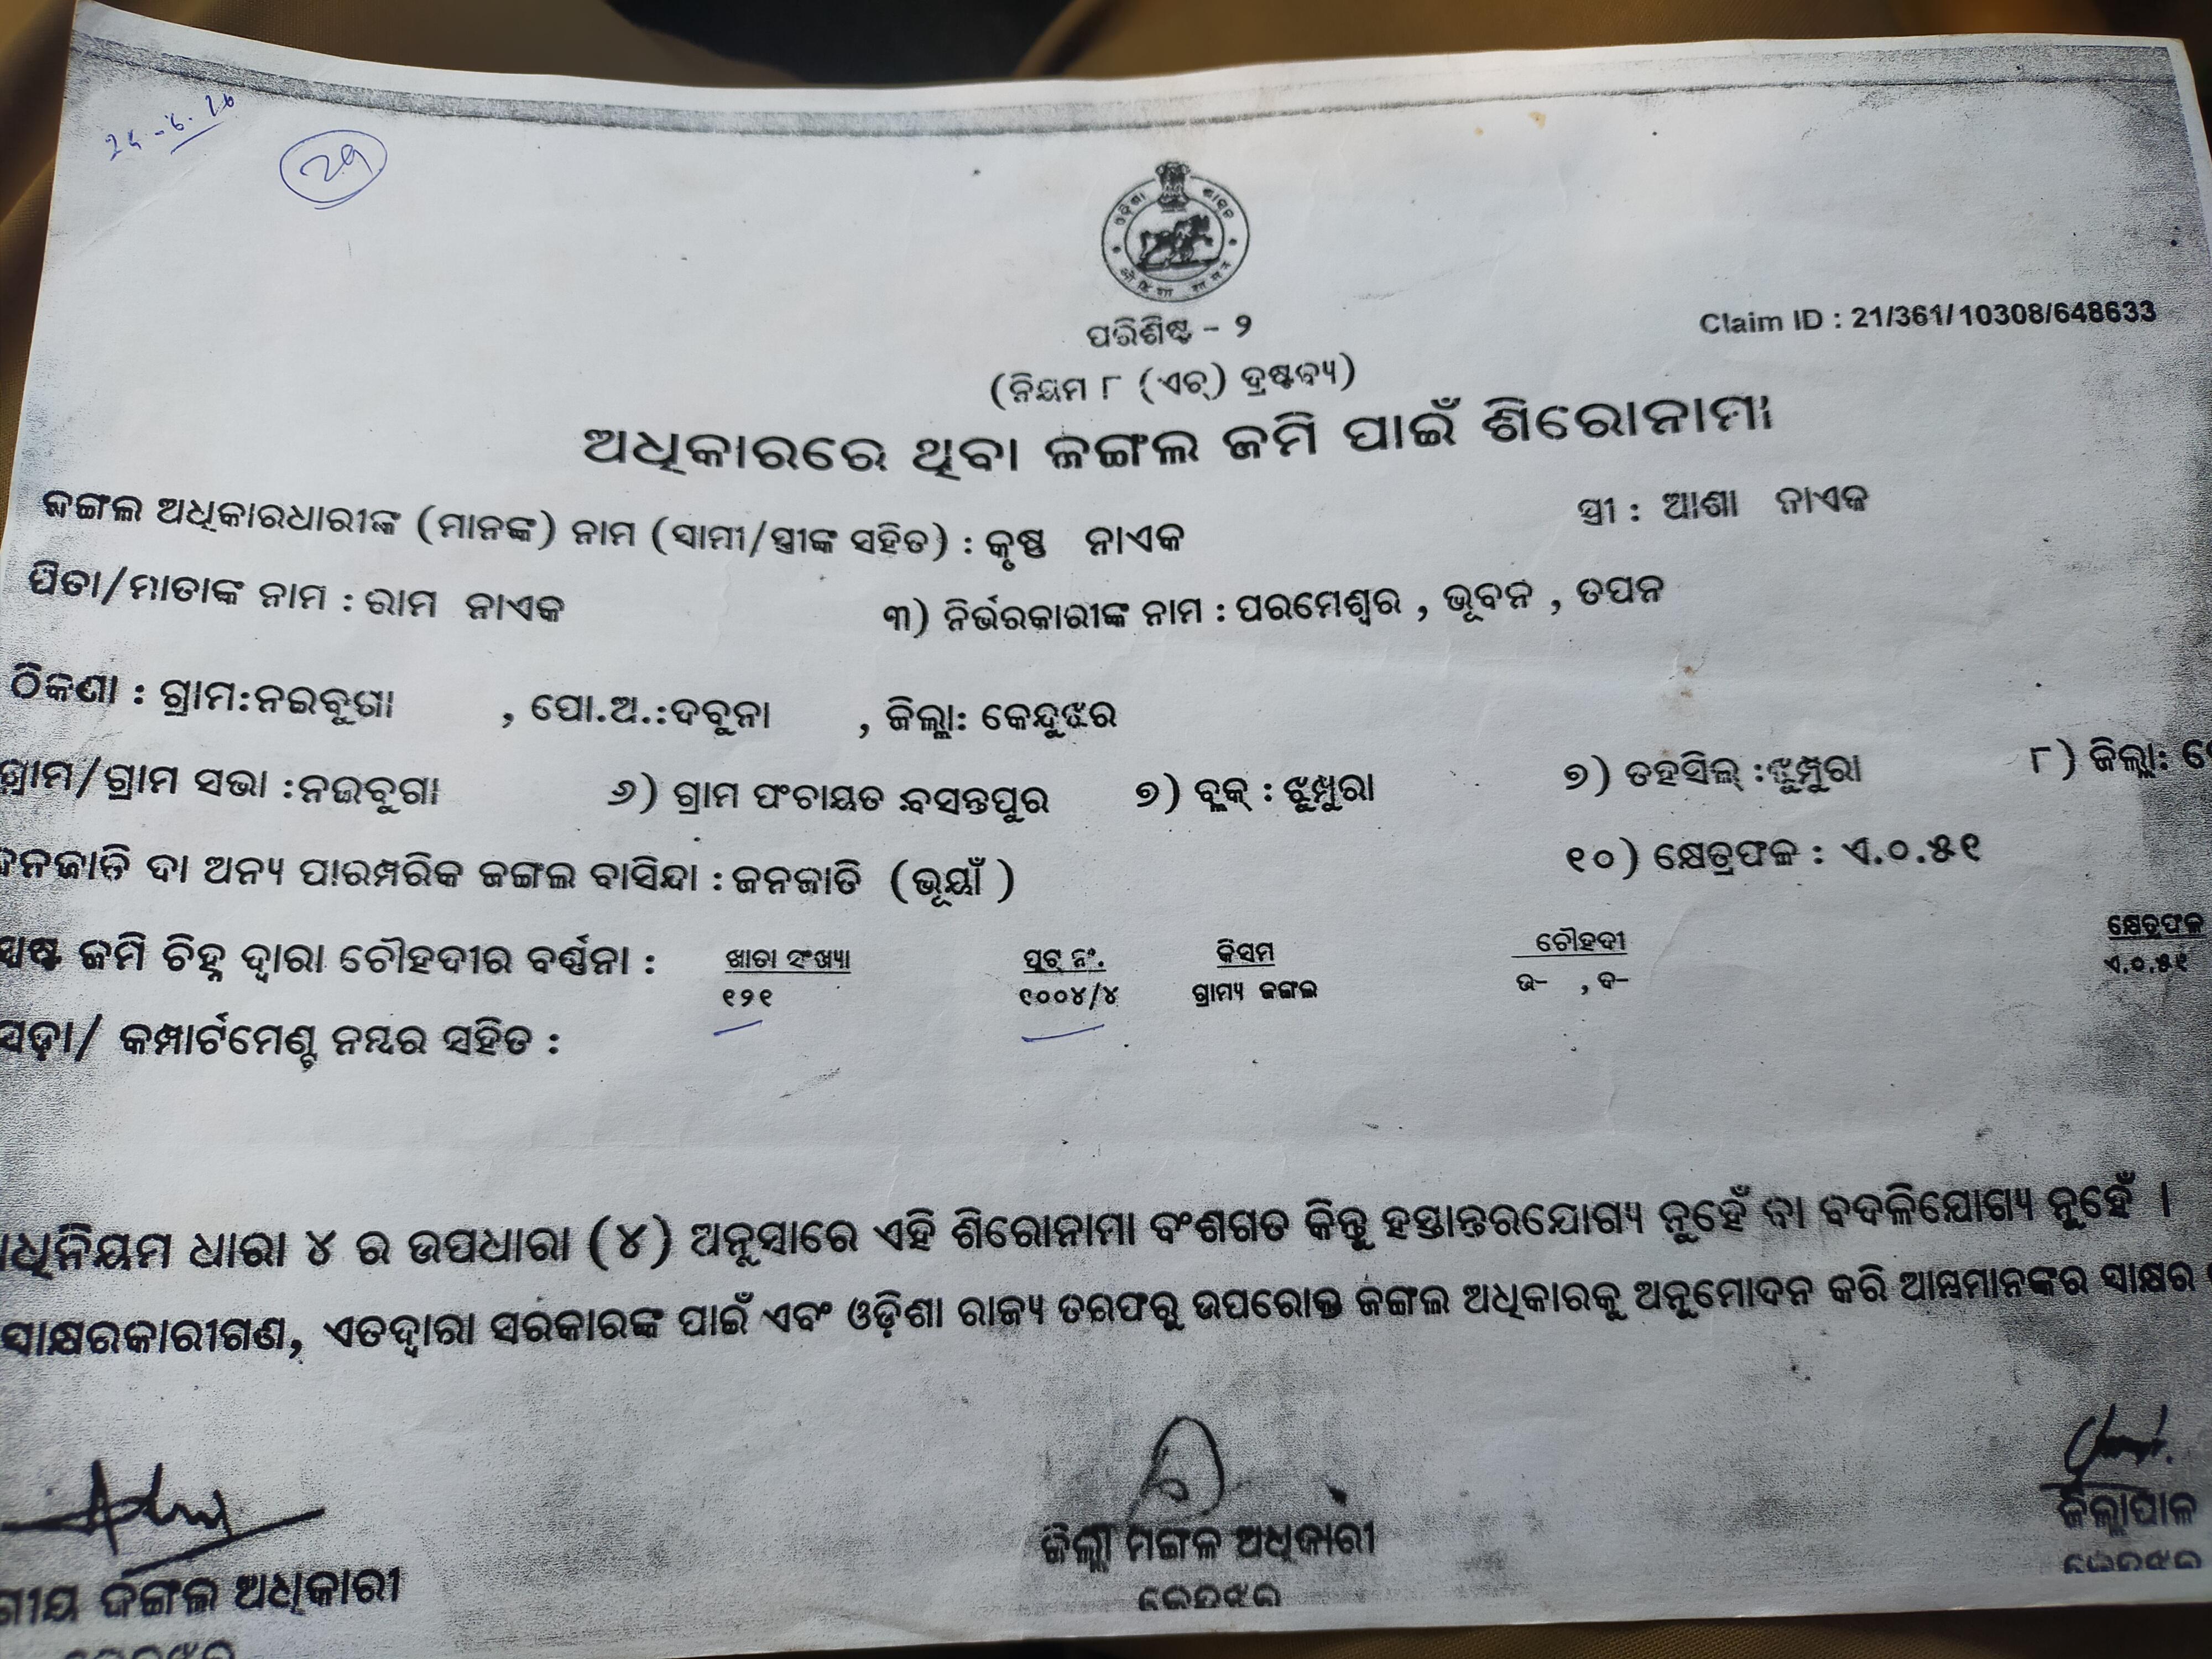 24-6-26
29
ପରିଶିଷ୍ଟ - ୨
Claim ID : 21/361/10308/648633
(ନିୟମ ୮ (ଏଚ୍) ଦ୍ରଷ୍ଟବ୍ୟ)
ଅଧିକାରରେ ଥିବା ଜଙ୍ଗଲ ଜମି ପାଇଁ ଶିରୋନାମା
ଜଙ୍ଗଲ ଅଧିକାରଧାରୀଙ୍କ (ମାନଙ୍କ) ନାମ (ସ୍ୱାମୀ/ସ୍ତ୍ରୀଙ୍କ ସହିତ) : କୃଷ୍ଣ ନାଏକ ସ୍ତ୍ରୀ : ଆଶା ନାଏକ
ପିତା/ମାତାଙ୍କ ନାମ : ରାମ ନାଏକ ୩) ନିର୍ଭରକାରୀଙ୍କ ନାମ : ପରମେଶ୍ୱର , ଭୂବନ , ତପନ
ଠିକଣା : ଗ୍ରାମ:ନଇବୁଗା , ପୋ.ଅ.:ଦବୁନା , ଜିଲ୍ଲା: କେନ୍ଦୁଝର
ଗ୍ରାମ/ଗ୍ରାମ ସଭା :ନଇବୁଗା ୬) ଗ୍ରାମ ପଂଚାୟତ :ବସନ୍ତପୁର ୭) ବ୍ଲକ୍ : ଝୁମ୍ପୁରା ୭) ତହସିଲ୍ :ଝୁମ୍ପୁରା ୮) ଜିଲ୍ଲା:
ଜନଜାତି ବା ଅନ୍ୟ ପାରମ୍ପରିକ ଜଙ୍ଗଲ ବାସିନ୍ଦା : ଜନଜାତି (ଭୂୟାଁ ) ୧୦) କ୍ଷେତ୍ରଫଳ : ଏ.୦.୫୧
ଜମି ଚିହ୍ନ ଦ୍ୱାରା ଚୌହଦୀର ବର୍ଣ୍ଣନା : ଖାତା ସଂଖ୍ୟା ପ୍ଲଟ୍ ନଂ. କିସମ ଚୌହଦୀ କ୍ଷେତ୍ରଫଳ
୧୨୧ ୧୦୦୪/୪ ଗ୍ରାମ୍ୟ ଜଙ୍ଗଲ ଉ- , ଦ- ଏ.୦.୫୧
କମ୍ପାର୍ଟମେଣ୍ଟ ନମ୍ବର ସହିତ :
ଧାରା ୪ ର ଉପଧାରା (୪) ଅନୁସାରେ ଏହି ଶିରୋନାମା ବଂଶଗତ କିନ୍ତୁ ହସ୍ତାନ୍ତରଯୋଗ୍ୟ ନୁହେଁ ବା ବଦଳିଯୋଗ୍ୟ ନୁହେଁ ।
ସାକ୍ଷରକାରୀଗଣ, ଏତଦ୍ୱାରା ସରକାରଙ୍କ ପାଇଁ ଏବଂ ଓଡ଼ିଶା ରାଜ୍ୟ ତରଫରୁ ଉପରୋକ୍ତ ଜଙ୍ଗଲ ଅଧିକାରକୁ ଅନୁମୋଦନ କରି ଆମ୍ଭମାନଙ୍କର ସାକ୍ଷର
ଜଙ୍ଗଲ ଅଧିକାରୀ ଜିଲ୍ଲା ମଙ୍ଗଳ ଅଧିକାରୀ ଜିଲ୍ଲାପାଳ